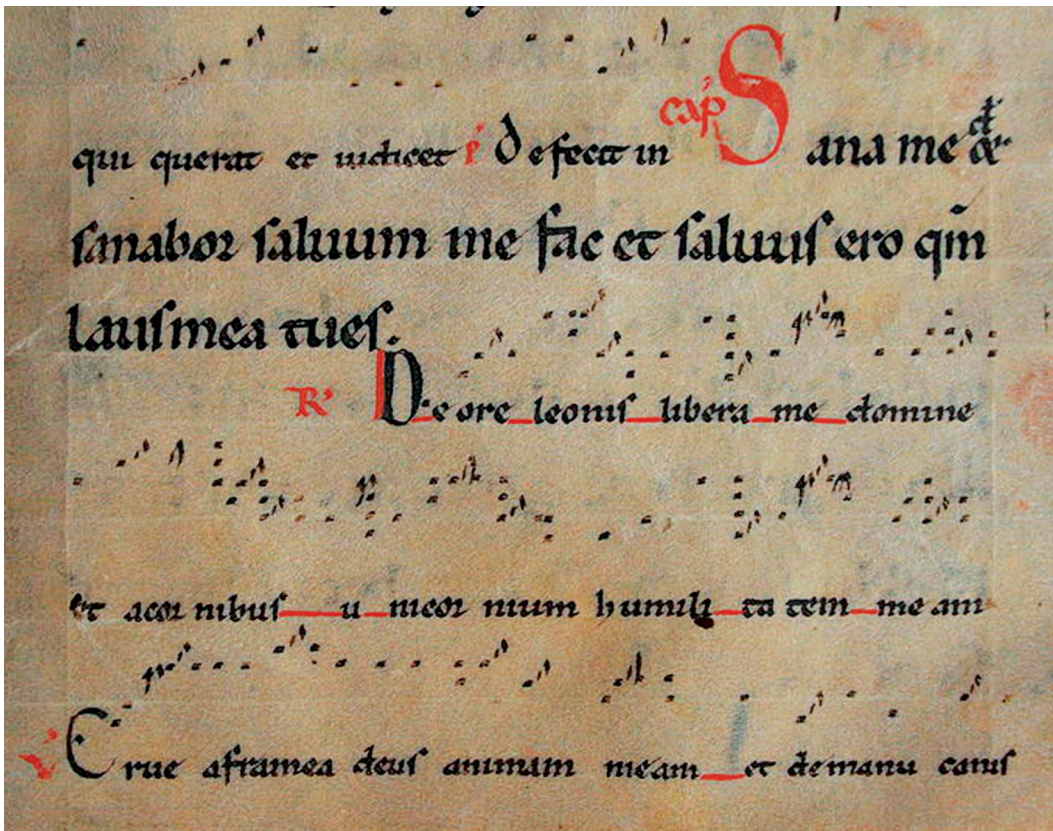 qui querat et iudicet P Defecit in cap̄ Sana me dn̄e &
sanabor saluum me fac et saluus ero qm̄
laus mea tu es.
R De ore leonis libera me domine
et a cor nibus u nicor nium humili ta tem me am
V Erue a framea deus animam meam et de manu canis